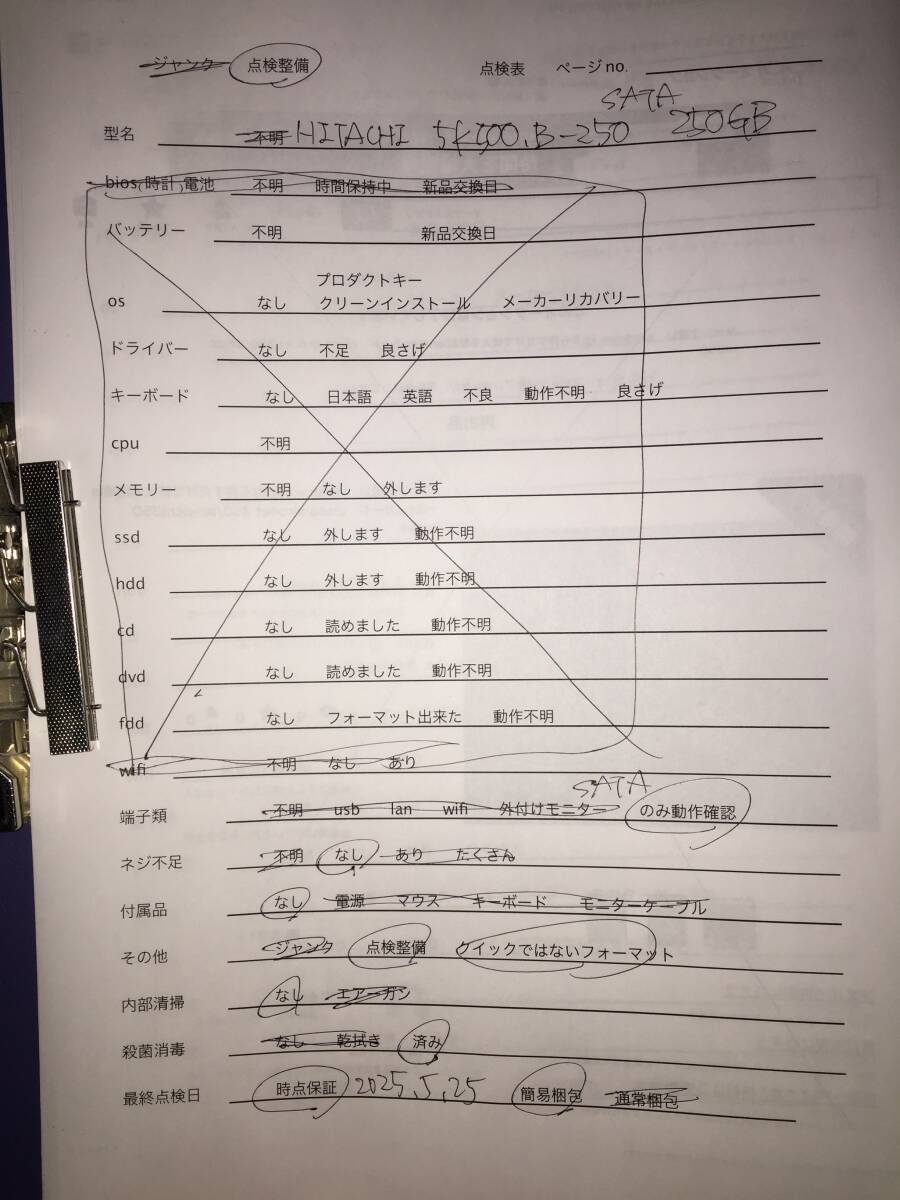 ジャンク 点検整備 点検表 ページno.
SATA
型名 不明 HITACHI 5K500.B-250 250GB
bios(時計)電池 不明 時間保持中 新品交換日
バッテリー 不明 新品交換日
プロダクトキー
os なし クリーンインストール メーカーリカバリー
ドライバー なし 不足 良さげ
キーボード なし 日本語 英語 不良 動作不明 良さげ
cpu 不明
メモリー 不明 なし 外します
ssd なし 外します 動作不明
hdd なし 外します 動作不明
cd なし 読めました 動作不明
dvd なし 読めました 動作不明
fdd なし フォーマット出来た 動作不明
wifi 不明 なし あり
SATA
端子類 不明 usb lan wifi 外付けモニター のみ動作確認
ネジ不足 不明 なし あり たくさん
付属品 なし 電源 マウス キーボード モニターケーブル
その他 ジャンク 点検整備 クイックではないフォーマット
内部清掃 なし エアーガン
殺菌消毒 なし 乾拭き 済み
最終点検日 時点保証 2025.5.25 簡易梱包 通常梱包